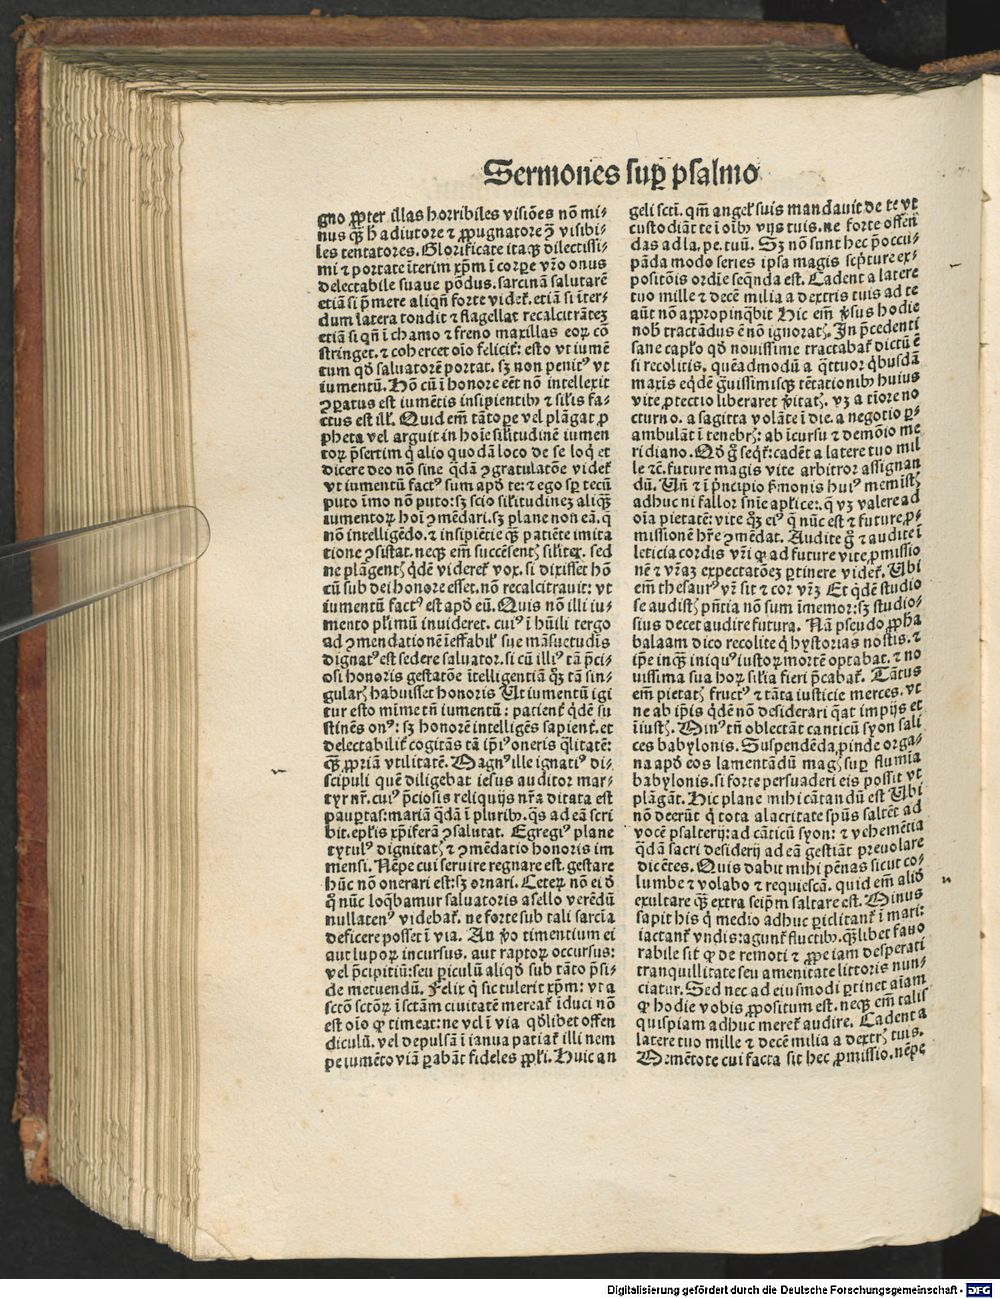 Sermones suꝑ psalmo
gno ꝓpter illas horribiles visiões nõ mi⸗
nus qȝ̃ h̃ adiutore ⁊ ꝓpugnatore ꝯ̃ visibi⸗
les tentatores. Glorificate itaqȝ dilectissi⸗
mi ⁊ portate ĩterim xp̃m ĩ corꝑe vr̃o onus
delectabile suaue põdus. sarcinã salutarẽ
etiã si p̃mere aliqñ forte videt᷑. etiã si iter⸗
dum latera tondit ⁊ flagellat recalcitrãteȝ
etiã si qñ ĩ chamo ⁊ freno maxillas eoꝝ cõ
stringet. ⁊ cohercet oĩo felicit᷑: esto vt iumẽ
tum qd̕ saluatorẽ portat. sȝ non penit⁹ vt
iumentũ. Hõ cũ ĩ honore eẽt nõ intellexit
ꝯꝑatus est iumẽtis insipientibꝰ ⁊ sil̕is fa⸗
ctus est ill̕. Quid em̃ tãtoꝑe vel plãgat ꝓ
pheta vel arguit in hoĩe sil̕itudinẽ iumen
toꝝ p̃sertim q̃ alio quodã loco de se loq̃t et
dicere deo nõ sine q̃dã ꝯgratulatõe videt᷑
vt iumentũ fact⁹ sum apd̕ te: ⁊ ego sꝑ tecũ
puto ĩmo nõ puto: sȝ scio sil̕itudineȝ aliqȝ̃
iumentoꝝ hoĩ ꝯmẽdari. sȝ plane non eã. q̃
nõ intelligẽdo. ⁊ insipiẽtie qȝ̃ patiẽte imita
tione ꝯsistat. neqȝ em̃ succẽsentꝭ sil̕iter. sed
ne plãgentꝭ q̃dẽ videret᷑ vox. si dixisset hõ
cũ sub dei honore esset. nõ recalcitrauit: vt
iumentũ fact⁹ est apd̕ eũ. Quis nõ illi iu⸗
mento pl̕imũ inuideret. cui⁹ ĩ hũili tergo
ad ꝯmendationẽ ĩeffabil̕ sue mãsuetudĩs
dignat⁹ est sedere saluator. si cũ illi⁹ tã p̃ci⸗
osi honoris gestatõe ĩtelligentiã qȝ tã sin⸗
gularꝭ habuisset honoris Ut iumentũ igi
tur esto mĩme tñ iumentũ: patient᷑ q̃dẽ su
stinẽs on⁹: sȝ honorẽ intelligẽs sapient᷑. et
delectabilit᷑ cogitãs tã ip̃i⁹ oneris q̃litatẽ:
qȝ̃ ꝓpriã vtilitatẽ. Magn⁹ ille ignati⁹ di⸗
scipuli quẽ diligebat iesus auditor mar⸗
tyr nr̃. cui⁹ p̃ciosis reliquijs nr̃a ditata est
pauꝑtas: mariã q̃dã ĩ pluribꝰ. q̃s ad eã scri
bit. epl̕is xp̃iferã ꝯsalutat. Egregi⁹ plane
tytul⁹ dignitatꝭ ⁊ ꝯmẽdatio honoris im
mensi. Nẽpe cui seruire regnare est. gestare
hũc nõ onerari est: sȝ ornari. Ceteꝝ nõ ei d̕
q̃ nũc loq̃bamur saluatoris asello verẽdũ
nullaten⁹ videbat᷑. ne forte sub tali sarcĩa
deficere posset ĩ via. An ṽo timentium ei
aut lupoꝝ incursus. aut raptoꝝ occursus:
vel p̃cipitiũ: seu ꝑiculũ aliqd̕ sub tãto p̃si⸗
de metuendũ. Felix q̃ sic tulerit xp̃m: vt a
sctõ sctõꝝ ĩ sctãm ciuitatẽ mereat᷑ ĩduci nõ
est oĩo ꝙ timeat: ne vel ĩ via qd̕libet offen
diculũ. vel depulsã ĩ ianua patiat᷑ illi nem
pe iumẽto viã ꝑabãt fideles ꝓpl̕i. Huic an
geli sctĩ. qm̃ angel̕ suis mandauit de te vt
custodiãt te ĩ oĩbꝰ vijs tuis. ne forte offen
das ad la. pe. tuũ. Sȝ nõ sunt hec p̃occu⸗
pãda modo series ipsa magis sc̕pture ex⸗
positõis ordĩe seq̃nda est. Cadent a latere
tuo mille ⁊ decẽ milia a dextris tuis ad te
aũt nõ appropinq̃bit Hic em̃ ṽsus hodie
nob̕ tractãdus ẽ nõ ignoratꝭ. In p̃cedenti
sane capl̕o qd̕ nouissime tractabat᷑ dictũ ẽ
si recolitis. quẽadmodũ a q̃ttuor q̃busdã
maxĩs eq̃dẽ g̃uissimisqȝ tẽtationibꝰ huius
vite ꝓtectio liberaret ṽitatꝭ. vȝ a tĩore no
cturno. a sagitta volãte ĩ die. a negotio ꝑ⸗
ambulãt ĩ tenebrꝭ: ab ĩcursu ⁊ demõio me
ridiano. Qd̕ g̃ seq̃t᷑: cadẽt a latere tuo mil
le ⁊c̃. future magis vite arbitror assignan
dũ. Uñ ⁊ ĩ p̃ncipio s̕monis hui⁹ meministꝭ
adhuc ni fallor snĩe apl̕ice:. q̃ vȝ valere ad
oĩa pietatẽ: vite qȝ ei⁹ q̃ nũc est ⁊ future ꝓ⸗
missionẽ hr̃e ꝯmẽdat. Audite g̃ ⁊ audite ĩ
leticia cordis vr̃i ꝙ ad future vite ꝓmissio
nẽ ⁊ vr̃aȝ expectatõeȝ ꝑtinere videt᷑. Ubi
em̃ thesaur⁹ vr̃ sit ⁊ cor vr̃ȝ Et q̃dẽ studio
se audistꝭ pñtia nõ sum ĩmemor: sȝ studio⸗
sius decet audire futura. Nã pseudo ꝓpha
balaam dico recolite q̃ hystorias nostis. ⁊
ip̃e inqȝ̃ iniqu⁹ iustoꝝ mortẽ optabat. ⁊ no
uissima sua hoꝝ sil̕ia fieri p̃cabat᷑. Tãtus
em̃ pietatꝭ fruct⁹ ⁊ tãta iusticie merces. vt
ne ab ip̃is q̃dẽ nõ desiderari q̃at impijs et
ĩiustꝭ. Min⁹ tñ oblectãt canticũ syon sali
ces babylonis. Suspendẽda ꝓinde orga⸗
na apd̕ eos lamentãdũ magꝭ suꝑ flumĩa
babylonis. si forte persuaderi eis possit vt
plãgãt. Hic plane mihi cãtandũ est Ubi
nõ deerũt q̃ tota alacritate spũs saltẽt ad
vocẽ psalterij: ad cãticũ syon: ⁊ vehemẽtia
q̃dã sacri desiderij ad eã gestiãt p̃euolare
dicẽtes. Quis dabit mihi pẽnas sicut co⸗
lumbe ⁊ volabo ⁊ requiescã. quid em̃ aliд̕
exultare qȝ̃ extra seip̃m saltare est. Minus
sapit his q̃ medio adhuc ꝑiclitant᷑ ĩ mari:
iactant᷑ vndis: agunt᷑ fluctibꝰ. qȝ̃libet fauo
rabile sit ꝙ de remoti ⁊ ꝓpe iam desperati
tranquillitate seu amenitate littoris nun⸗
ciatur. Sed nec ad eiusmodi ꝑtinet aĩam
ꝙ hodie vobis ꝓpositum est. neqȝ em̃ talis
quispiam adhuc meret᷑ audire. Cadent a
latere tuo mille ⁊ decẽ milia a dextrꝭ tuis.
Memẽtote cui facta sit hec ꝓmissio. nẽpe
Digitalisierung gefördert durch die Deutsche Forschungsgemeinschaft - DFG